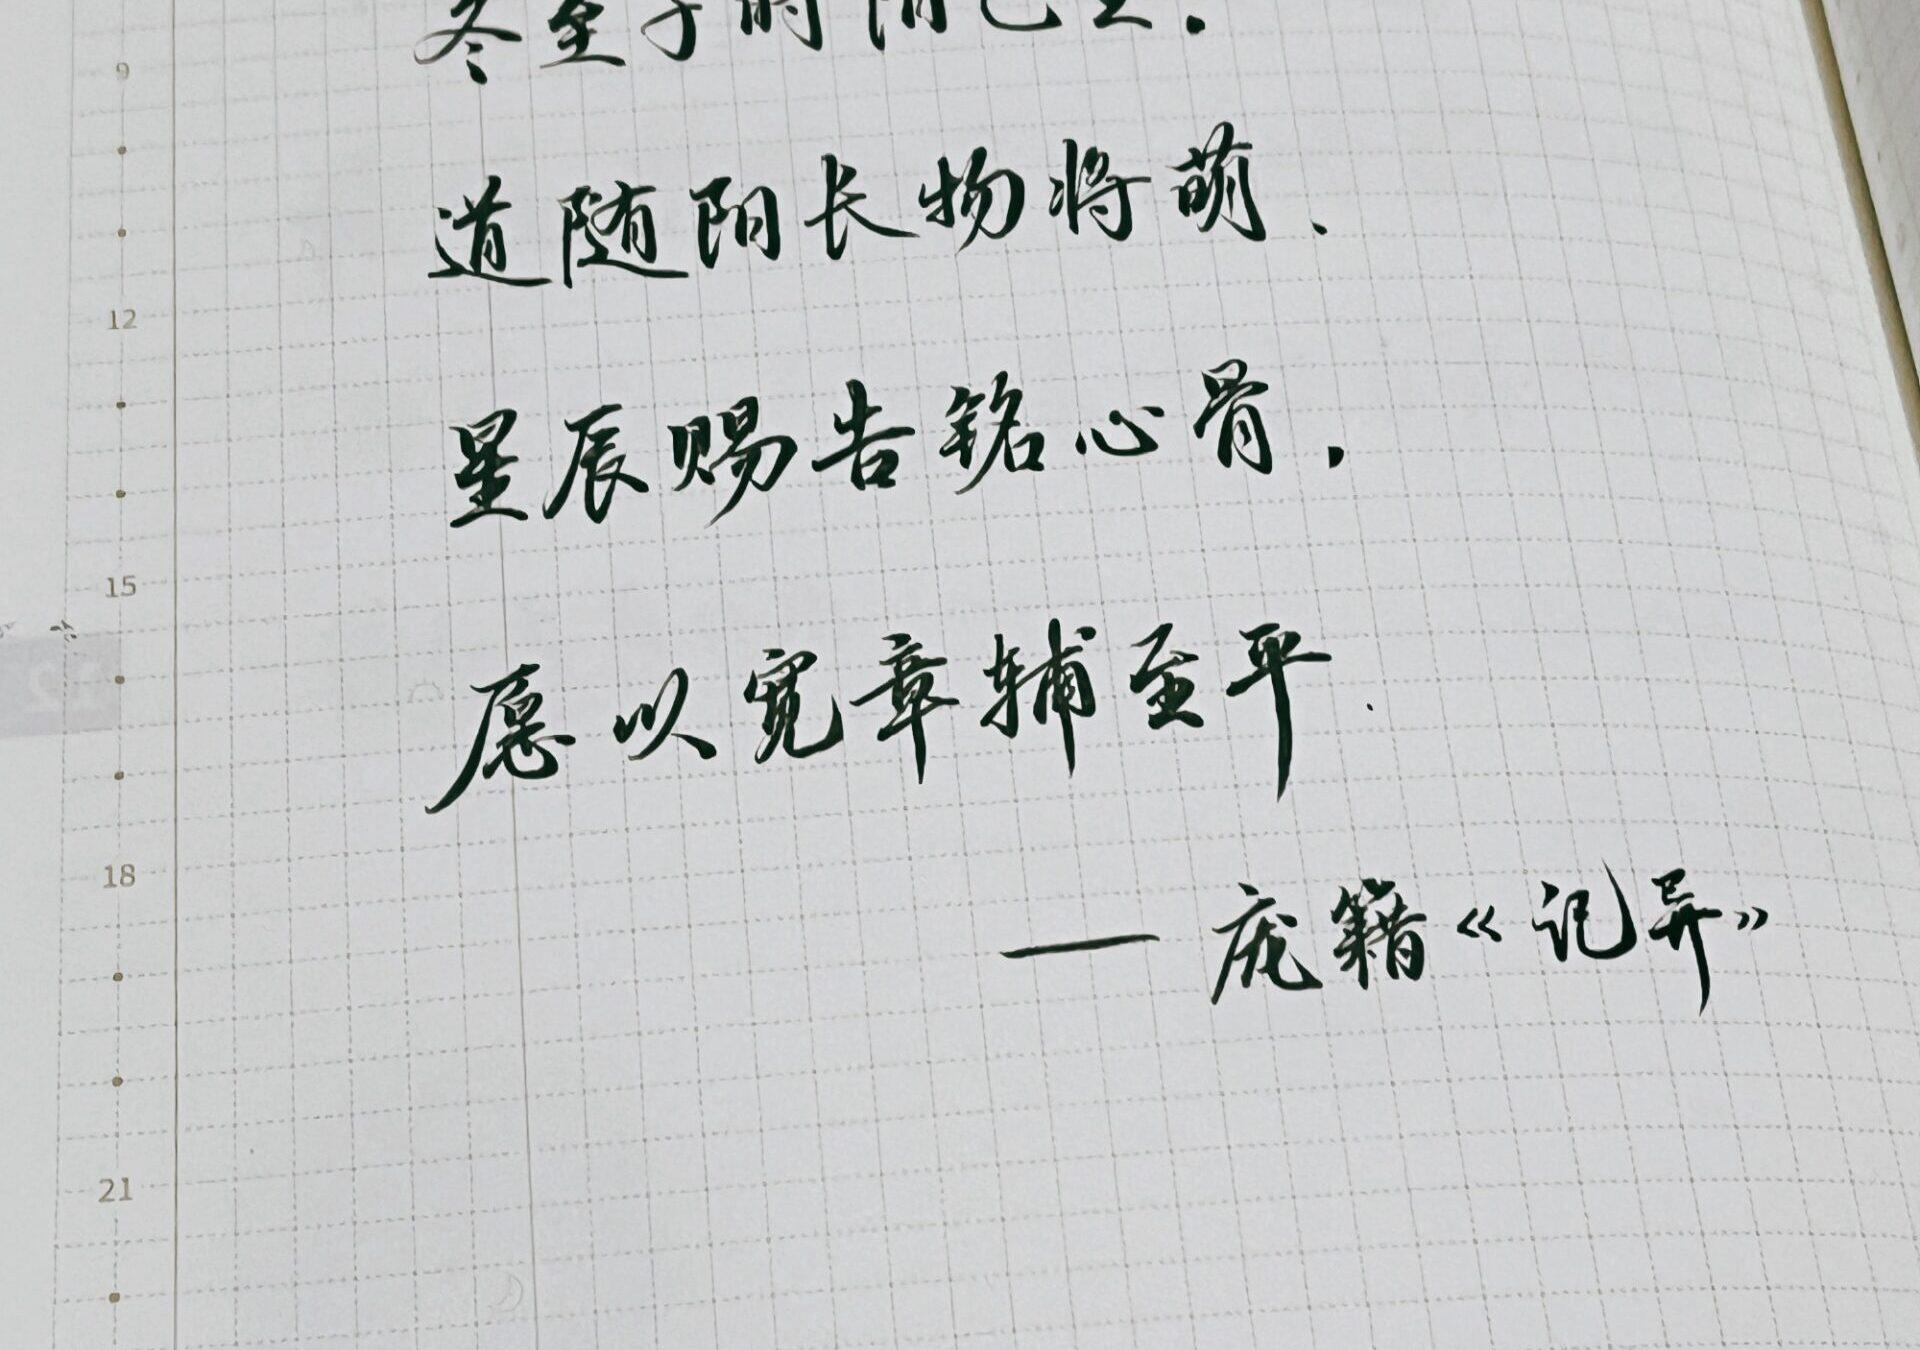 冬至子时阳已生.
道随阳长物将萌.
星辰赐告铭心骨.
愿以宽章辅至平.
—— 庞籍《记异》
9
12
15
18
21